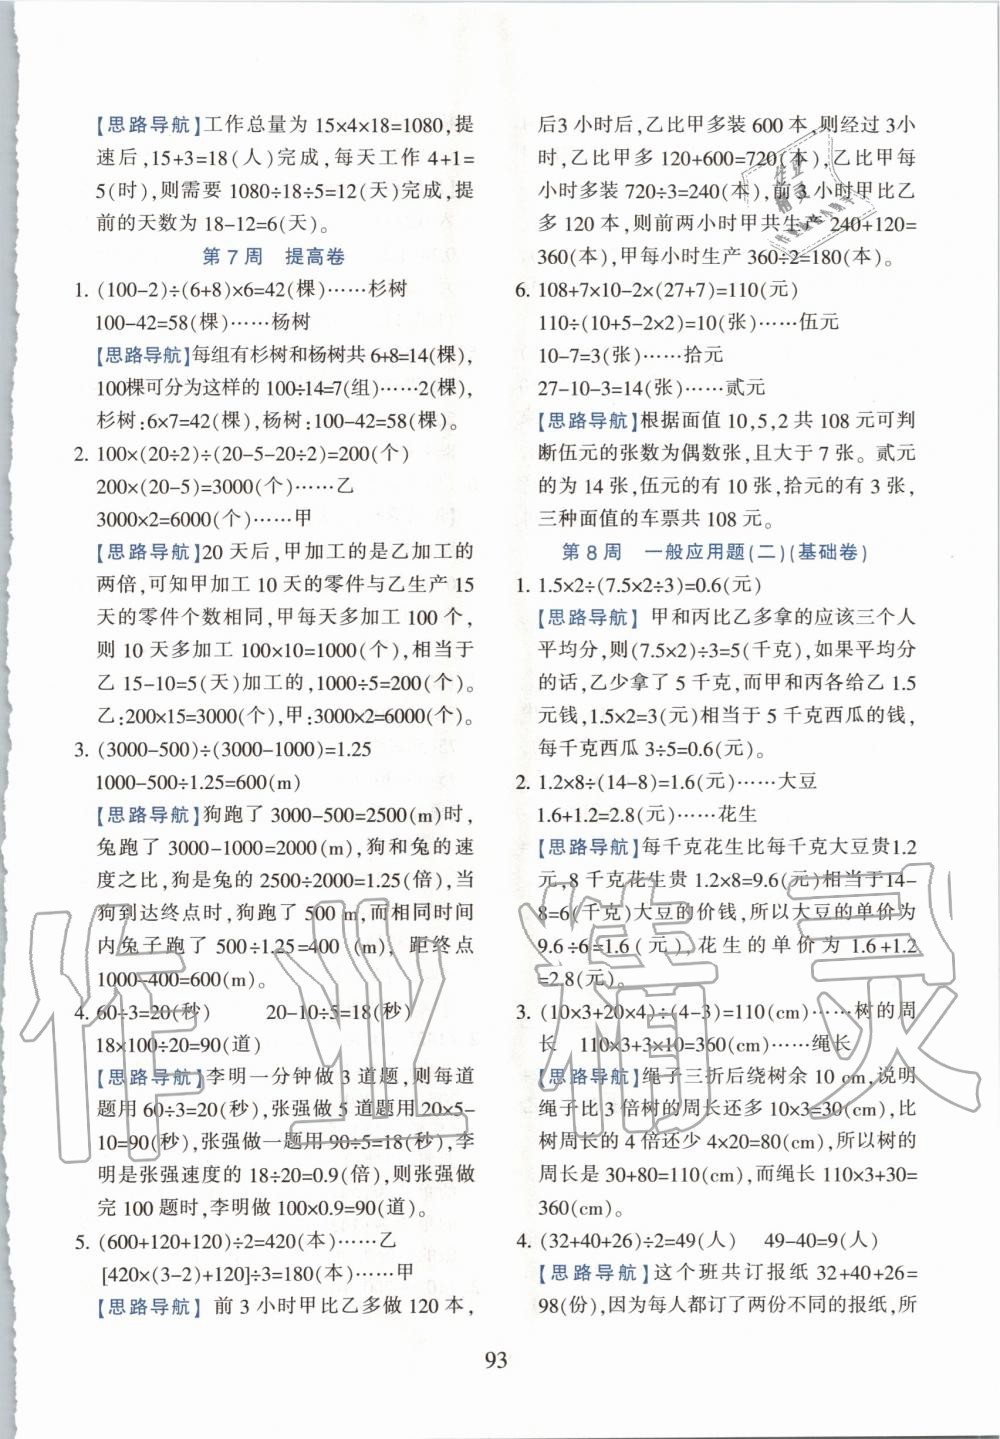 【思路导航】工作总量为 15×4×18=1080,提
速后,15+3=18(人)完成,每天工作 4+1=
5(时),则需要 1080÷18÷5=12(天)完成,提
前的天数为 18-12=6(天)。
第 7 周 提高卷
1. (100-2)÷(6+8)×6=42(棵)……杉树
100-42=58(棵)……杨树
【思路导航】每组有杉树和杨树共 6+8=14(棵),
100棵可分为这样的 100÷14=7(组)……2(棵),
杉树:6×7=42(棵),杨树:100-42=58(棵)。
2. 100×(20÷2)÷(20-5-20÷2)=200(个)
200×(20-5)=3000(个)……乙
3000×2=6000(个)……甲
【思路导航】20 天后,甲加工的是乙加工的
两倍,可知甲加工 10 天的零件与乙生产 15
天的零件个数相同,甲每天多加工 100 个,
则 10 天多加工 100×10=1000(个),相当于
乙 15-10=5(天)加工的,1000÷5=200(个)。
乙:200×15=3000(个),甲:3000×2=6000(个)。
3. (3000-500)÷(3000-1000)=1.25
1000-500÷1.25=600(m)
【思路导航】狗跑了 3000-500=2500(m)时,
兔跑了 3000-1000=2000(m),狗和兔的速
度之比,狗是兔的 2500÷2000=1.25(倍),当
狗到达终点时,狗跑了 500 m,而相同时间
内兔子跑了 500÷1.25=400 (m), 距终点
1000-400=600(m)。
4. 60÷3=20(秒) 20-10÷5=18(秒)
18×100÷20=90(道)
【思路导航】李明一分钟做 3 道题,则每道
题用 60÷3=20(秒),张强做 5 道题用 20×5-
10=90(秒),张强做一题用 90÷5=18(秒),李
明是张强速度的 18÷20=0.9(倍),则张强做
完 100 题时,李明做 100×0.9=90(道)。
5. (600+120+120)÷2=420(本)……乙
[420×(3-2)+120]÷3=180(本)……甲
【思路导航】 前 3 小时甲比乙多做 120 本,
后3 小时后,乙比甲多装 600 本,则经过 3小
时,乙比甲多 120+600=720(本),乙比甲每
小时多装 720÷3=240(本),前 3 小时甲比乙
多 120 本,则前两小时甲共生产 240+120=
360(本),甲每小时生产 360÷2=180(本)。
6. 108+7×10-2×(27+7)=110(元)
110÷(10+5-2×2)=10(张)……伍元
10-7=3(张)……拾元
27-10-3=14(张)……贰元
【思路导航】根据面值 10,5,2 共 108 元可判
断伍元的张数为偶数张,且大于 7 张。贰元
的为 14 张,伍元的有 10 张,拾元的有 3 张,
三种面值的车票共 108 元。
第 8 周 一般应用题(二)(基础卷)
1. 1.5×2÷(7.5×2÷3)=0.6(元)
【思路导航】 甲和丙比乙多拿的应该三个人
平均分,则(7.5×2)÷3=5(千克),如果平均分
的话,乙少拿了 5 千克,而甲和丙各给乙 1.5
元钱,1.5×2=3(元)相当于 5 千克西瓜的钱,
每千克西瓜 3÷5=0.6(元)。
2. 1.2×8÷(14-8)=1.6(元)……大豆
1.6+1.2=2.8(元)……花生
【思路导航】每千克花生比每千克大豆贵1.2
元,8 千克花生贵 1.2×8=9.6(元)相当于14-
8=6(千克)大豆的价钱,所以大豆的单价为
9.6÷6=1.6(元),花生的单价为 1.6+1.2
=2.8(元)。
3. (10×3+20×4)÷(4-3)=110(cm)……树的周
长 110×3+3×10=360(cm)……绳长
【思路导航】绳子三折后绕树余 10 cm,说明
绳子比 3 倍树的周长还多 10×3=30(cm),比
树周长的 4 倍还少 4×20=80(cm),所以树的
周长是 30+80=110(cm),而绳长 110×3+30=
360(cm)。
4. (32+40+26)÷2=49(人) 49-40=9(人)
【思路导航】这个班共订报纸 32+40+26=
98(份),因为每人都订了两份不同的报纸,所
93
作业精灵